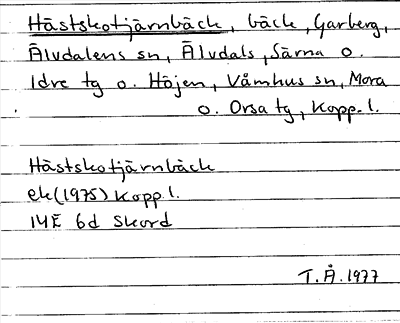 Hästskotjärnbäck, bäck, Garberg,
Älvdalens sn, Älvdals, Särna o.
Idre tg o. Höjen, Våmhus sn, Mora
o. Orsa tg, Kopp. l.
Hästskotjärnbäck
ek (1975) Kopp. l.
14E 6d Skord
T.Å. 1977